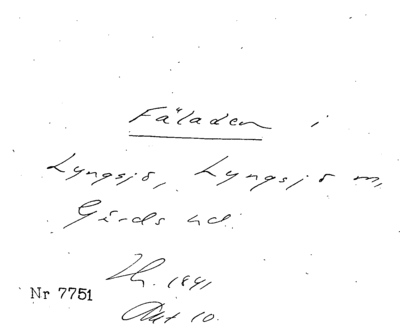 Fäladen i
Lyngsjö, Lyngsjö m,
Gärds hd.
1841
Nr 7751
Akt 10.